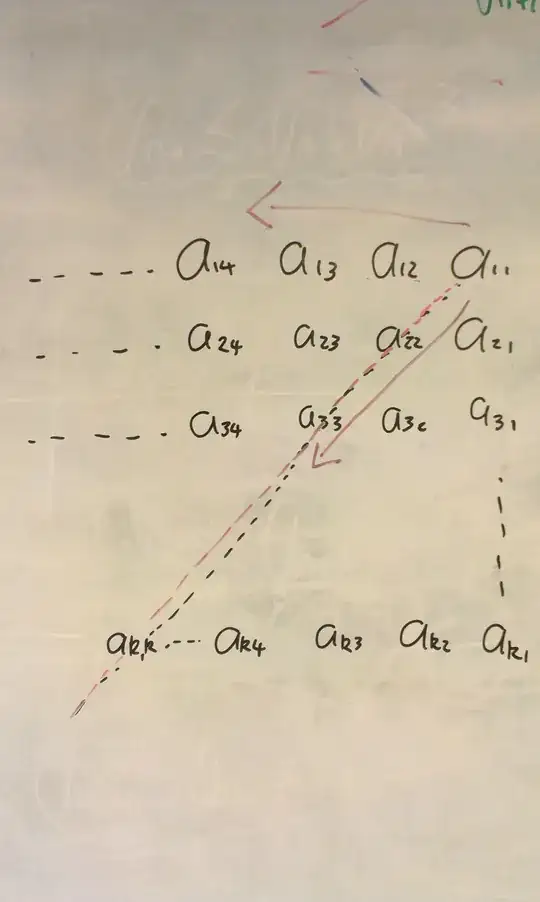 - - - - - a14 a13 a12 a11
- - - - a24 a23 a22 a21
- - - - - a34 a33 a3c a31
ak,k ---- ak4 ak3 ak2 ak1